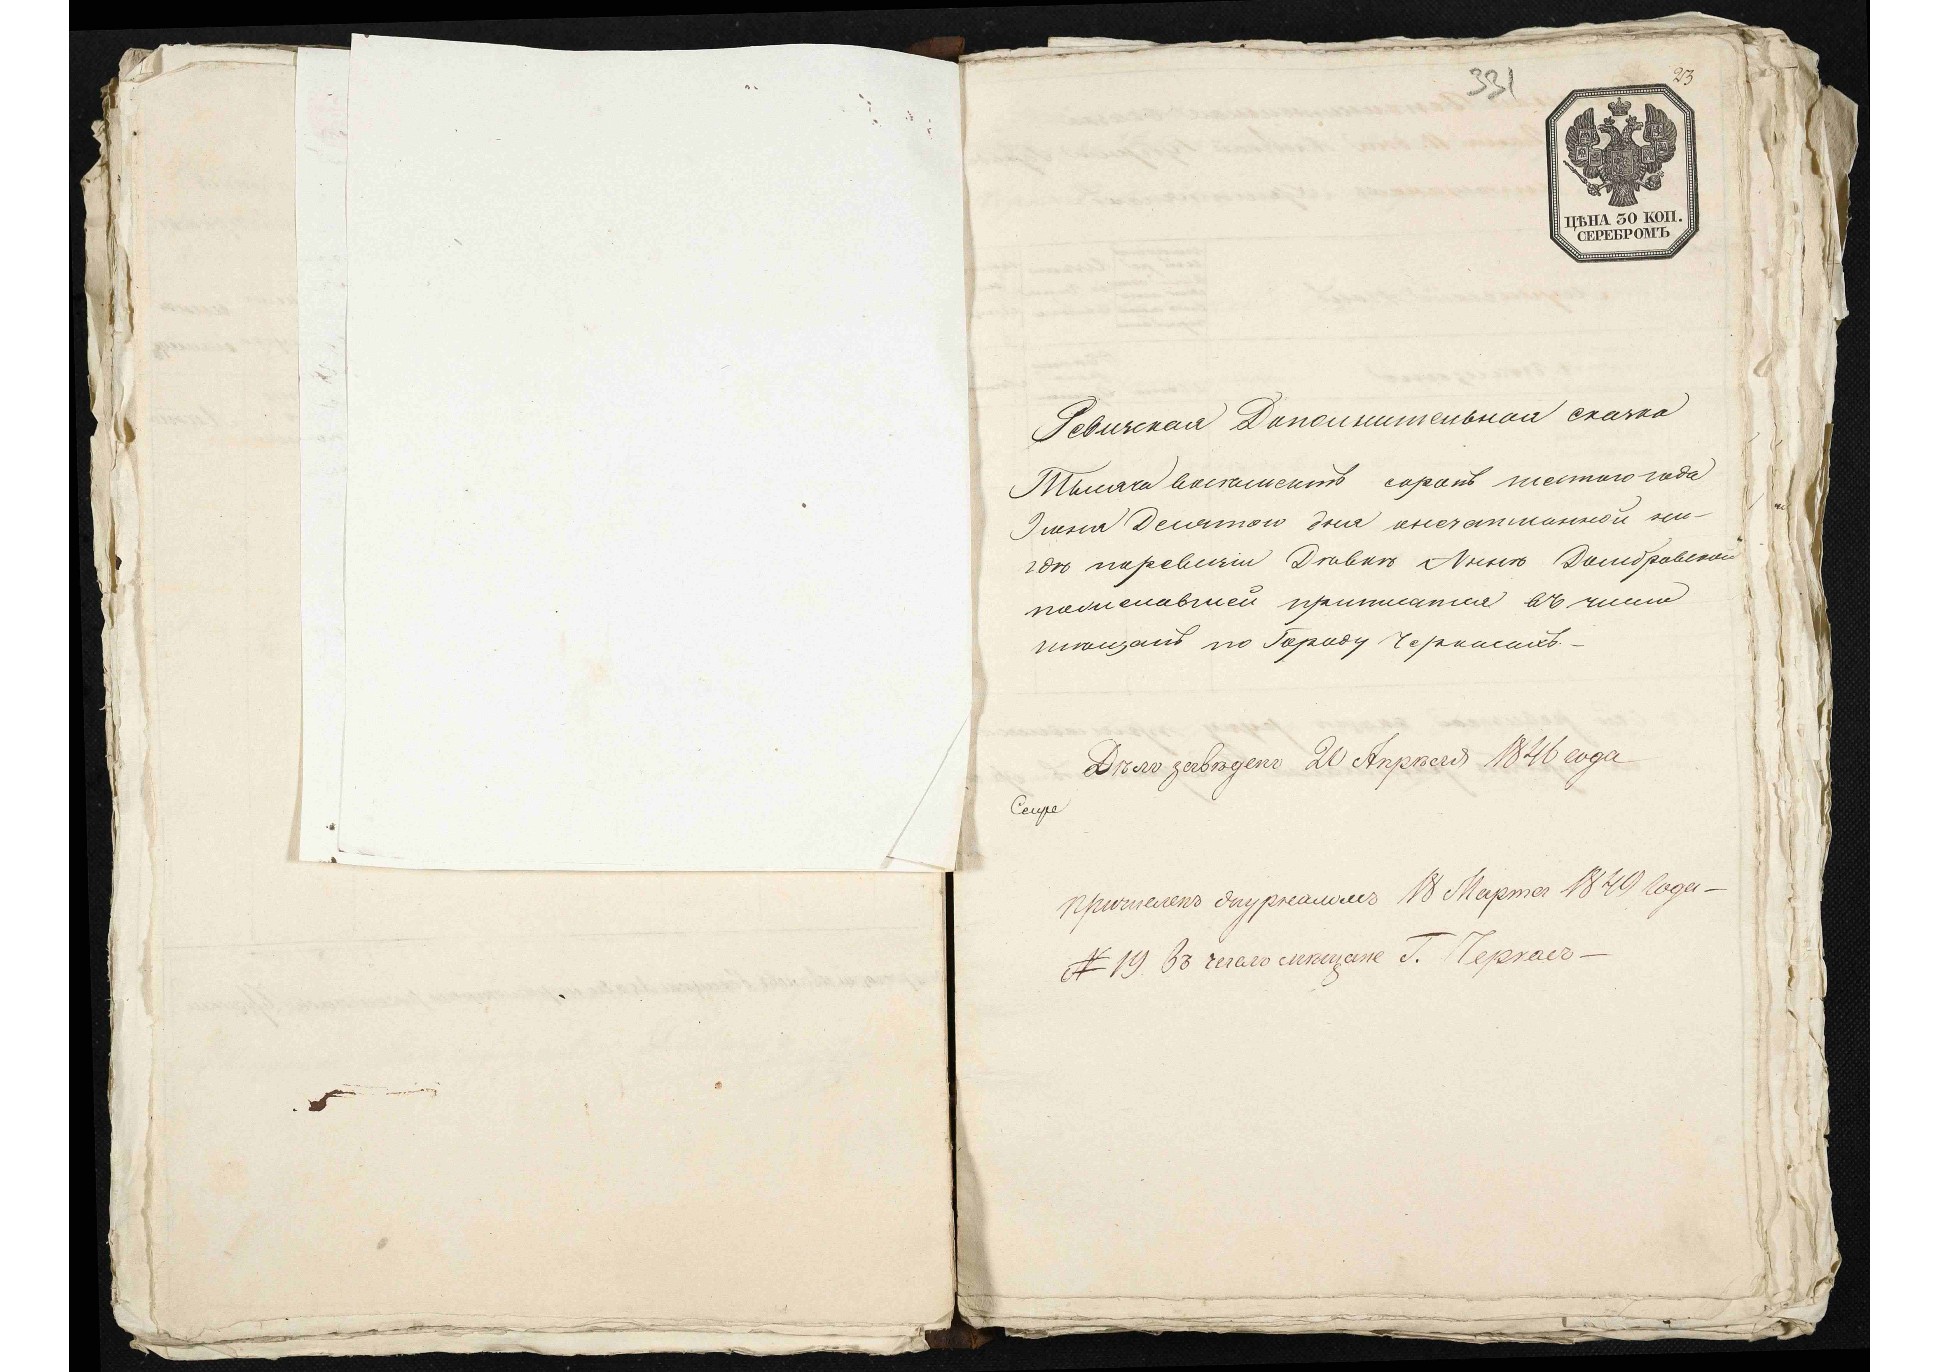 331
23
ЦѢНА 30 КОП.
СЕРЕБРОМЪ
Ревизская Дополнительная сказка
Тысяча восемьсотъ сорокъ шестого года
Іюня Десятого дня онезаписанной ни-
гдѣ поревизіи Дѣвкѣ Аннѣ Домбровской
пожелавшей приписатся въ число
мѣщанъ по Городу Черкасахъ. —
Дѣло завѣдено 20 Апрѣля 1846 года
Секре
причисленъ журналомъ 18 Марта 1849 года —
№ 19. Въ число мѣщане Г. Черкасъ —